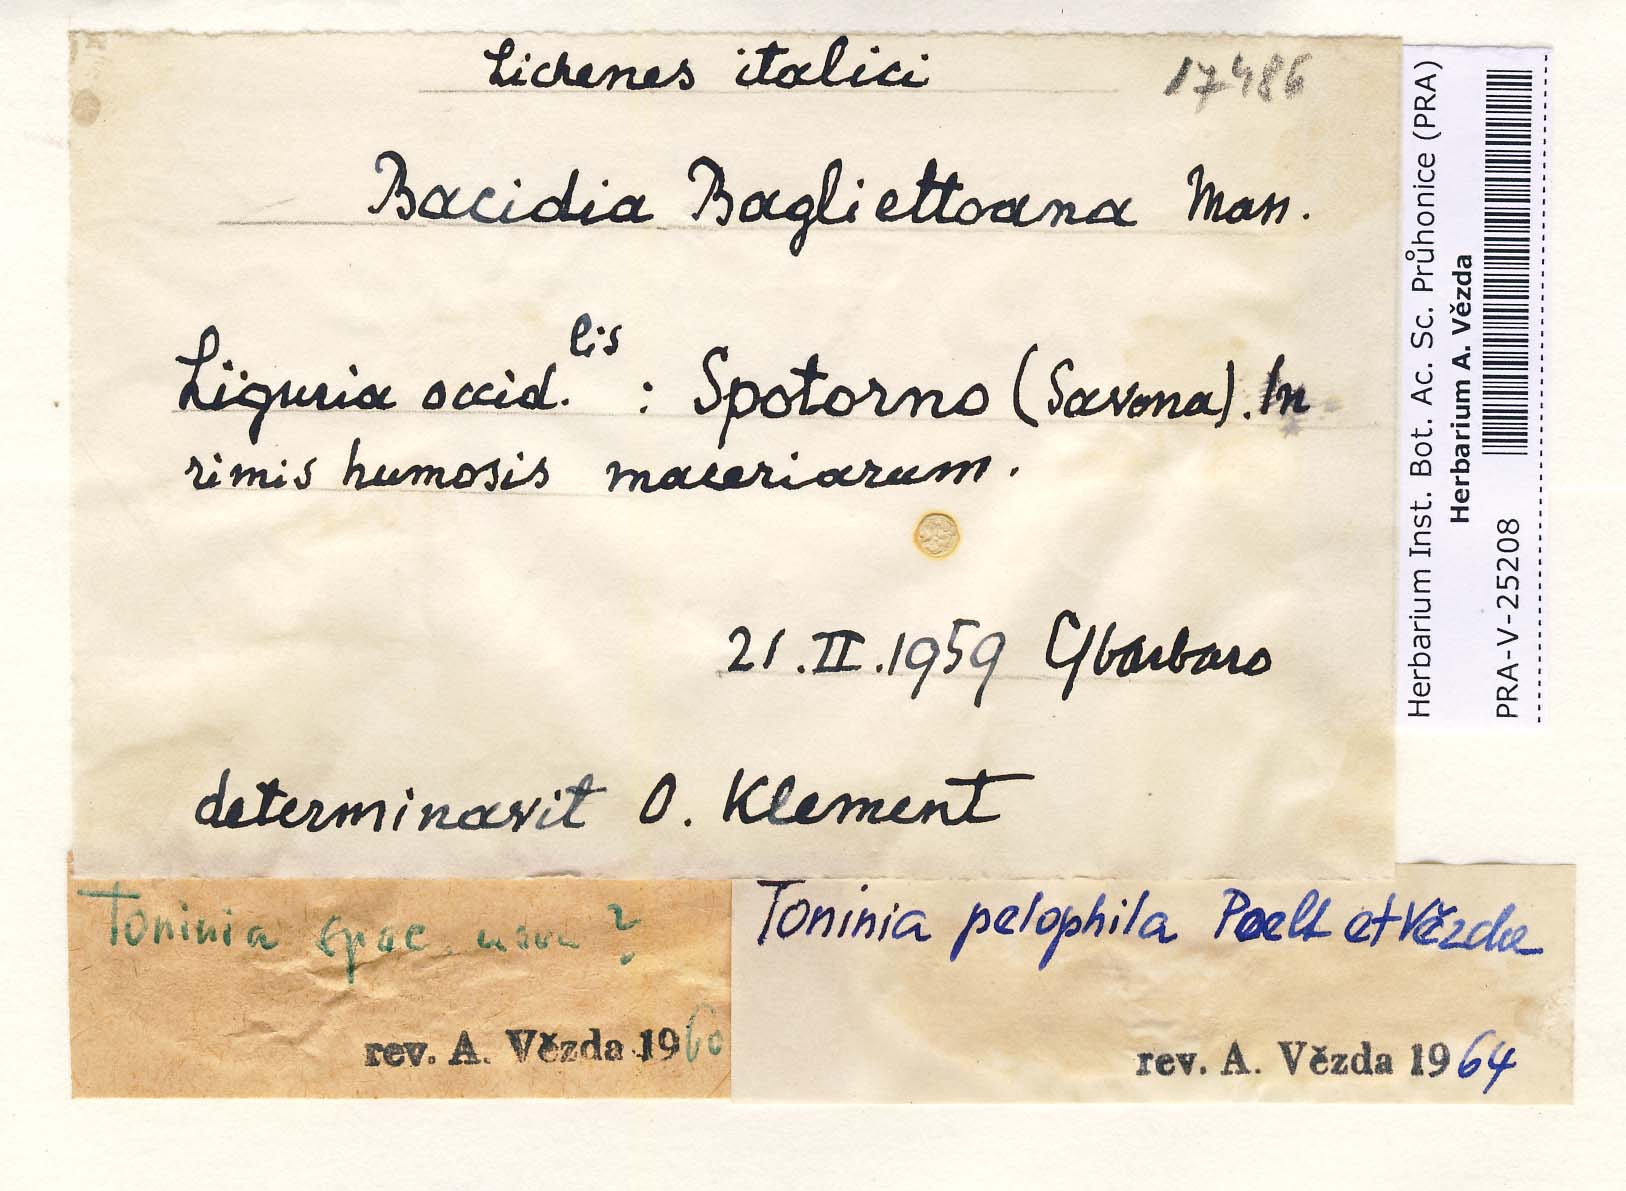 Lichenes italici 17486
Bacidia Bagliettoana Mass.
Liguria occid.lis : Spotorno (Savona). In
rimis humosis maceriarum.
21.II.1959 Sbarbaro
determinavit O. Klement
Toninia spec. nova ?
rev. A. Vězda 1960
Toninia pelophila Poelt et Vězda
rev. A. Vězda 1964
Herbarium Inst. Bot. Ac. Sc. Průhonice (PRA)
Herbarium A. Vězda
PRA-V-25208